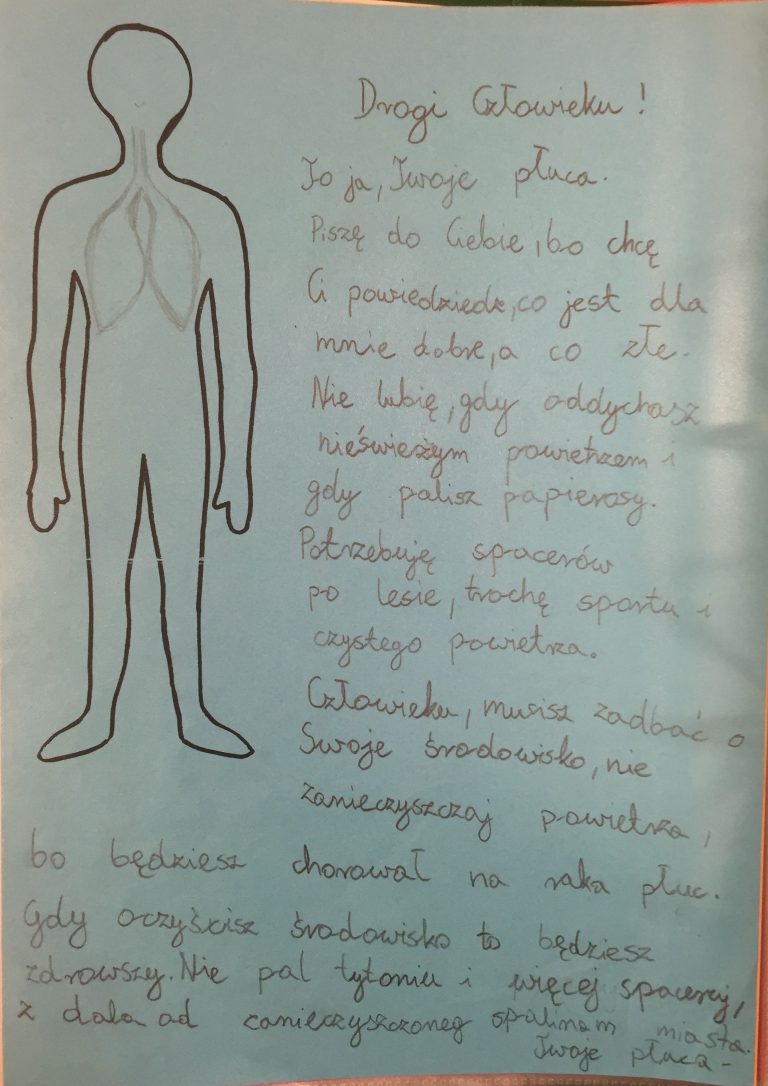 Drogi Człowieku!
To ja, Twoje płuca.
Piszę do Ciebie, bo chcę
Ci powiedziedź, co jest dla
mnie dobre, a co złe.
Nie lubię, gdy oddychasz
nieświeżym powietrzem i
gdy palisz papierosy.
Potrzebuję spacerów
po lesie, trochę sportu i
czystego powietrza.
Człowieku, musisz zadbać o
Swoje środowisko, nie
zanieczyszczaj powietrza,
bo będziesz chorował na raka płuc.
Gdy oczyścisz środowisko to będziesz
zdrowszy. Nie pal tytoniu i więcej spaceruj,
z dala od zanieczyszczoneg spalinam miasta.
Twoje płuca-